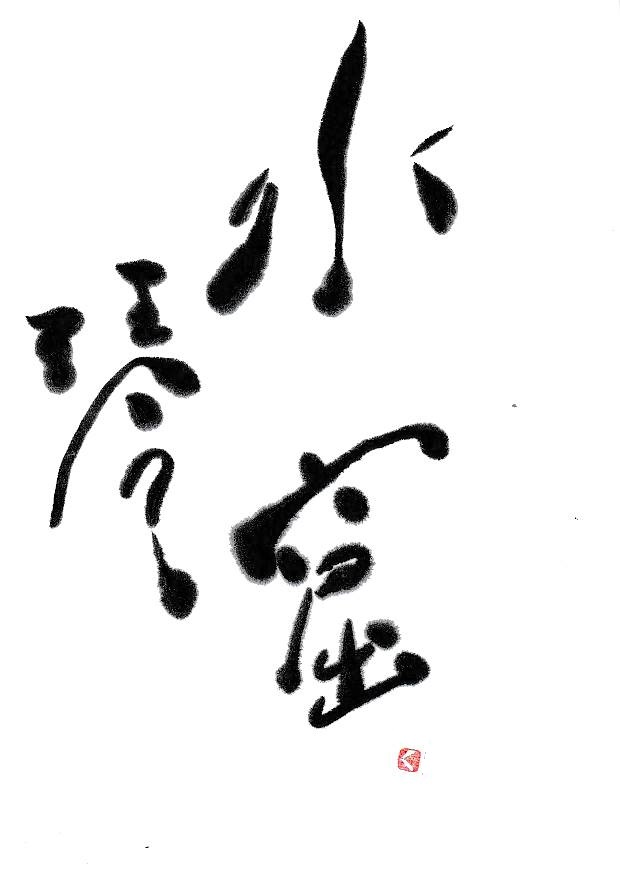 水琴窟